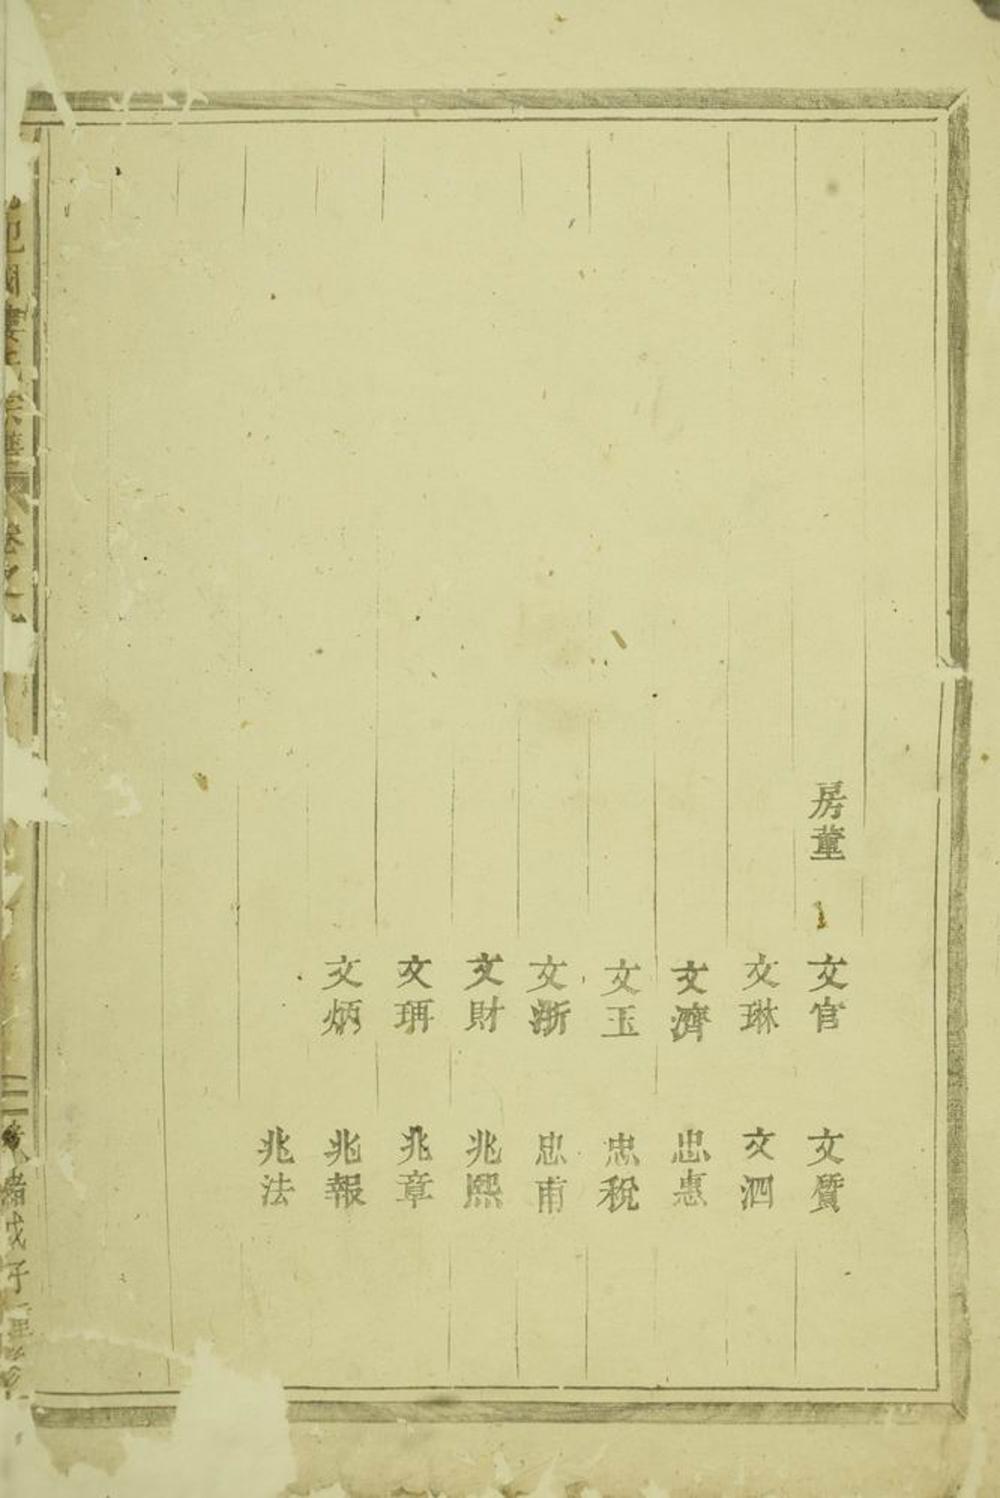 房董
文官 文質
文琳 文泗
文濟 忠惠
文玉 忠稅
文漸 忠甫
文財 兆熙
文 兆章
文炳 兆報
兆法
宗譜 卷之
二 光緒戊子